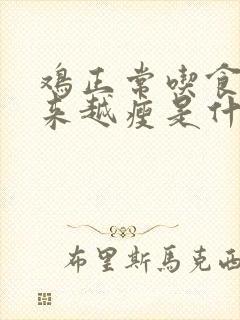 鸡正常喫食
来越瘦是什
布里斯馬克西